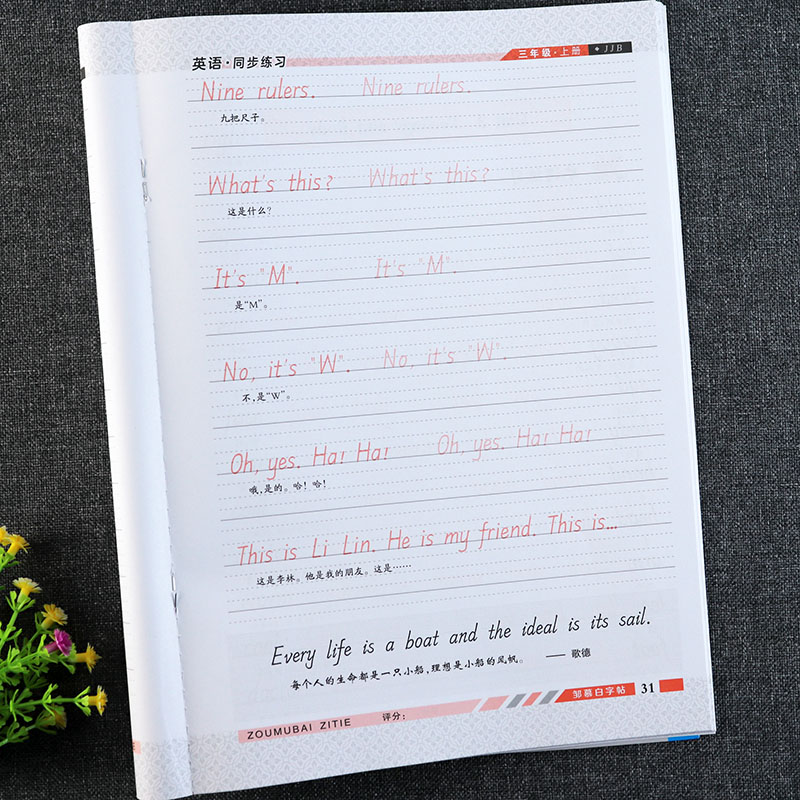 英语·同步练习 三年级·上册 ·JJB
Nine rulers. Nine rulers.
九把尺子。
What's this? What's this?
这是什么?
It's "M". It's "M".
是“M”。
No, it's "W". No, it's "W".
不,是“W”。
Oh, yes. Ha! Ha! Oh, yes. Ha! Ha!
哦,是的。哈!哈!
This is Li Lin. He is my friend. This is...
这是李林。他是我的朋友。这是……
Every life is a boat and the ideal is its sail.
每个人的生命都是一只小船,理想是小船的风帆。 —— 歌德
ZOUMUBAI ZITIE 评分: 邹慕白字帖 31